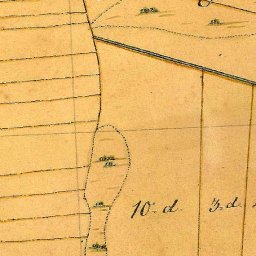 10. d. 3. d.